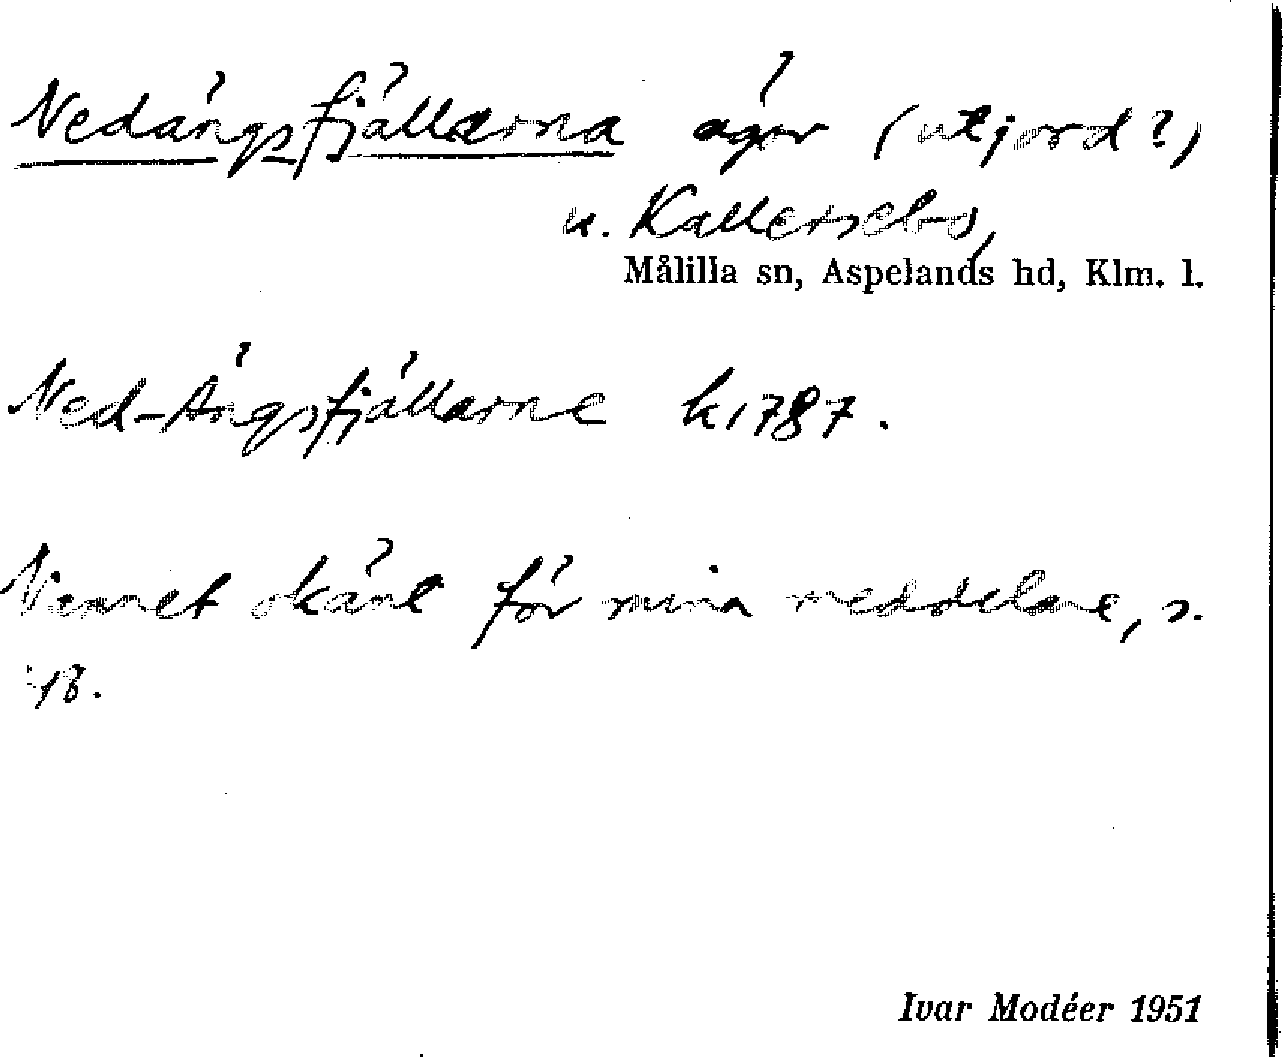 Nedängsfjällarna ägor (utjord?)
u. Kallersebo,
Målilla sn, Aspelands hd, Klm. l.
Ned-Ängsfjällarne k 1787.
Namnet okänt för mina meddelare, s.
48.
Ivar Modéer 1951